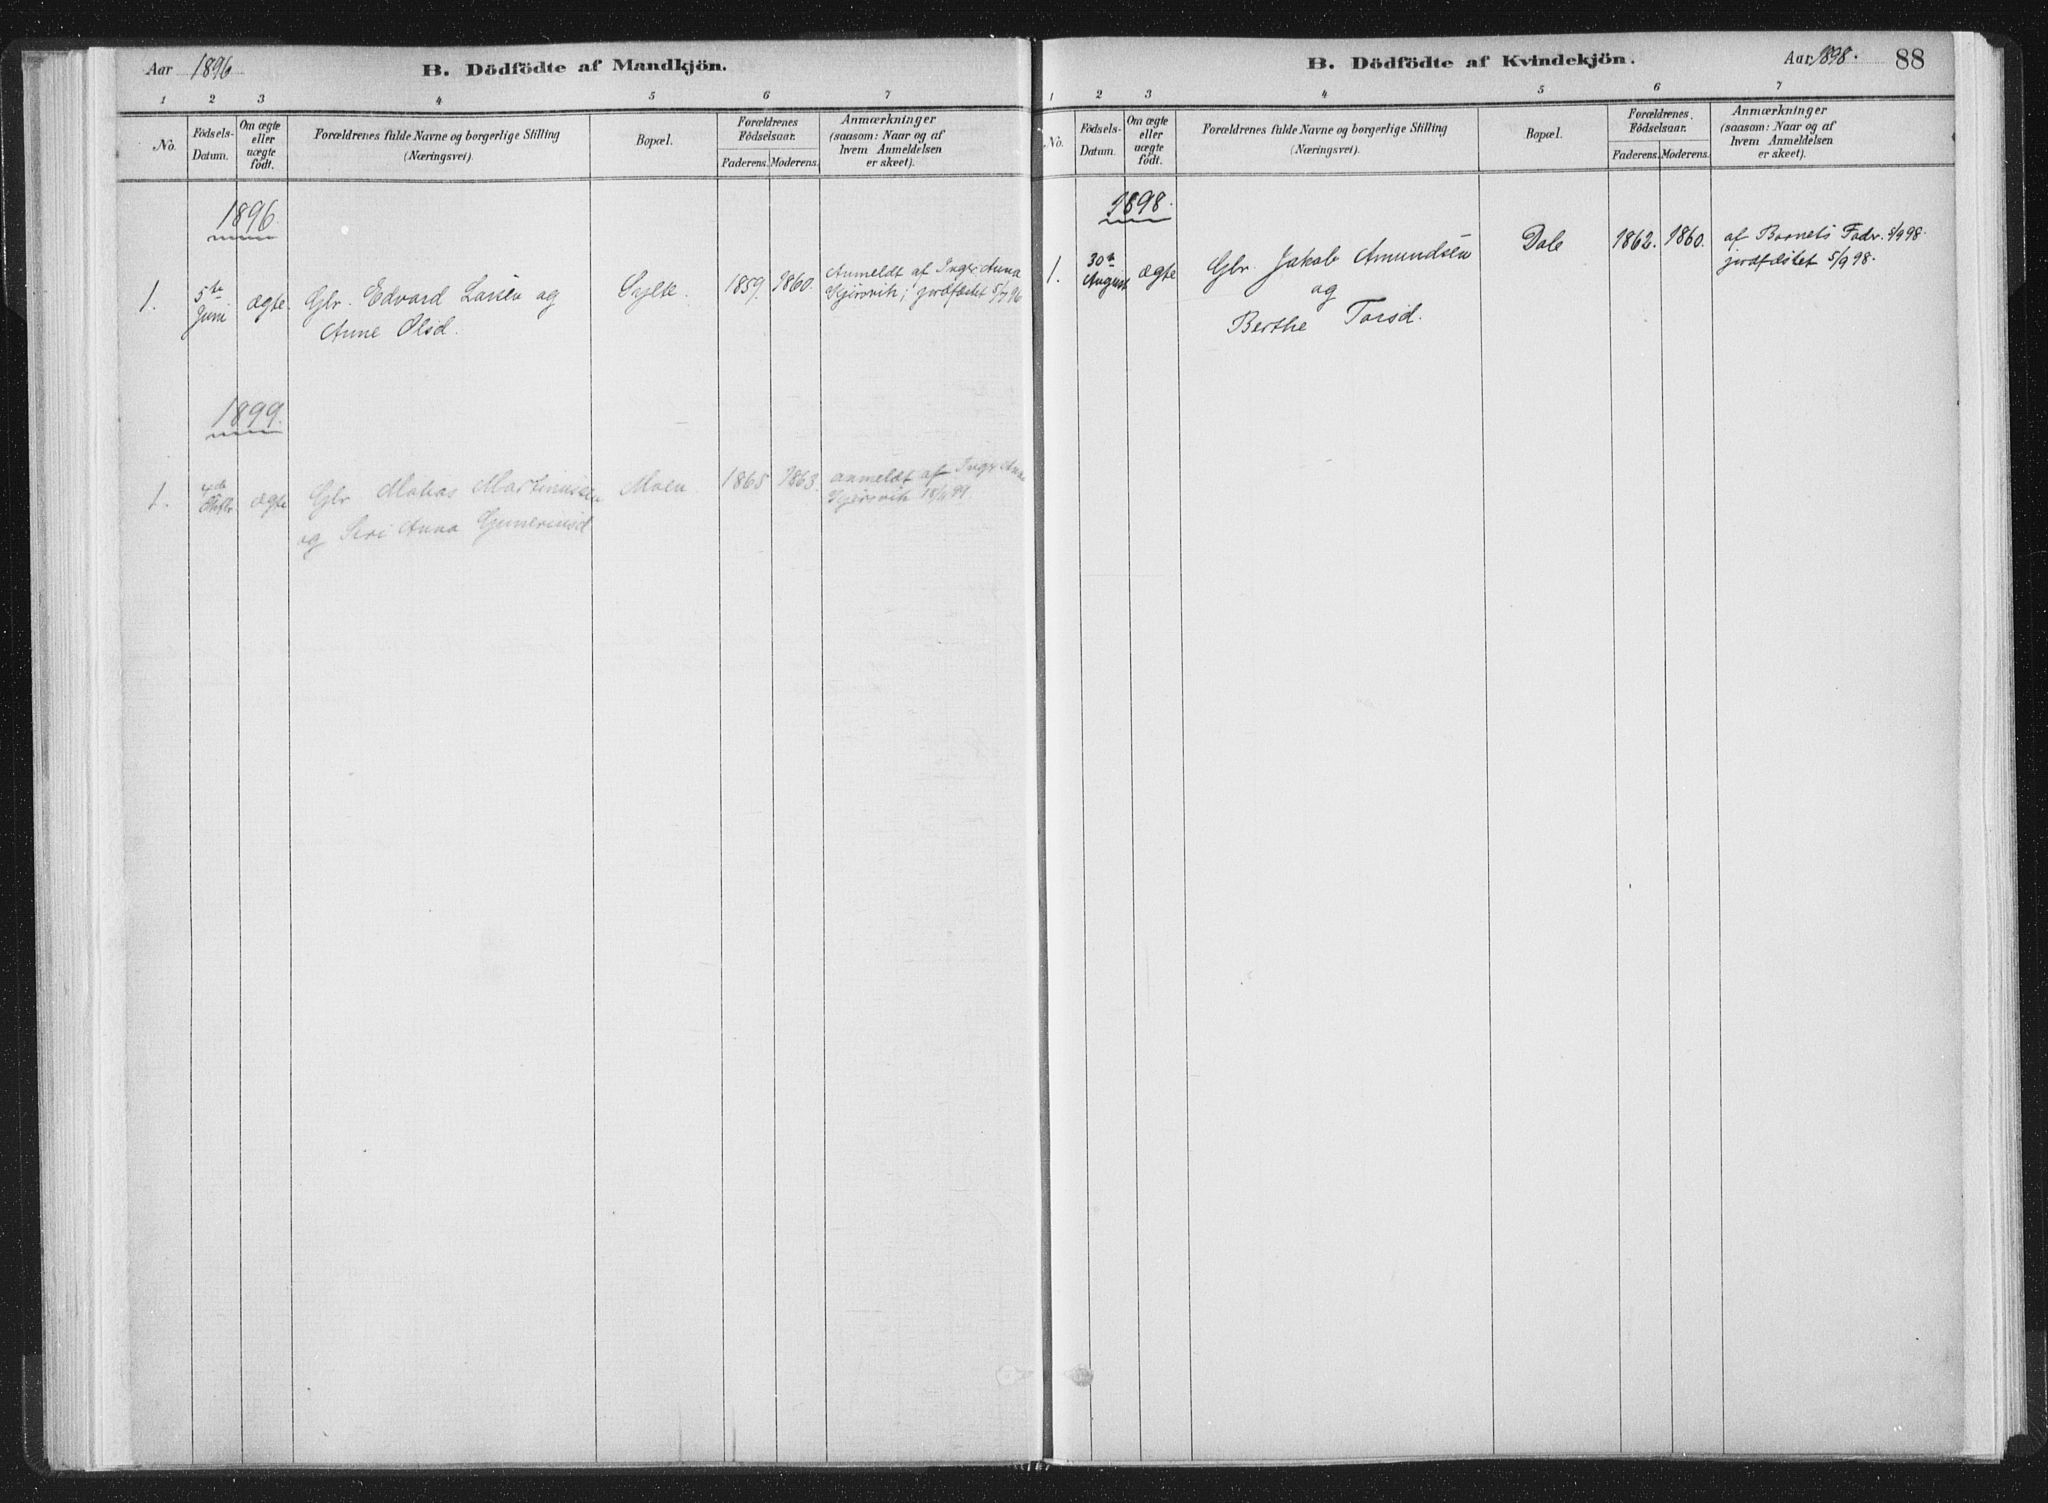 Aar 1896
B. Dödfödte af Mandkjön.
1 2 3 4 5 6 7
No.
Födsels-
Datum.
Om ægte
eller
uægte
födt.
Forældrenes fulde Navne og borgerlige Stilling
(Næringsvei).
Bopæl.
Forældrenes
Födselsaar.
Faderens. Moderens.
Anmærkninger
(saasom: Naar og af
hvem Anmeldelsen
er skeet).
1896.
1. 5te Juni ægte. Gbr. Edvard Larsen og
Anne Olsd.
Sylte. 1859. 1860.
Anmeldt af Inger Anna
jordfæstet 5/7 96
1899.
1. ægte Gbr. Matias Martinussen
og Siri Anna
Moen 1865 1863.
anmeldt af Inger Anna
18/11 99.
B. Dödfödte af Kvindekjön.
Aar 1898.
88
1 2 3 4 5 6 7
No.
Födsels-
Datum.
Om ægte
eller
uægte
födt.
Forældrenes fulde Navne og borgerlige Stilling
(Næringsvei).
Bopæl.
Forældrenes
Födselsaar.
Faderens. Moderens.
Anmærkninger
(saasom: Naar og af
hvem Anmeldelsen
er skeet).
1898.
1. 30te August ægte Gbr. Jakob Amundsen
og
Berthe Torsd.
Dale 1862. 1860.
af Barnets Fader 5/9 98.
jordfæstet 5/9 98.